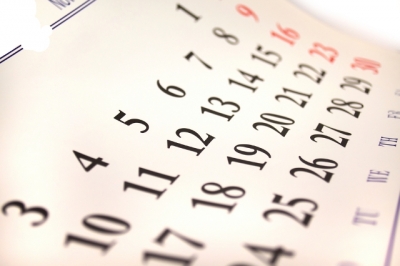 9 16 23 30
1 8 15 22 29
7 14 21 28
6 13 20 27 TH
5 12 19 26 WE
4 11 18 25 TU
3 10 17 24